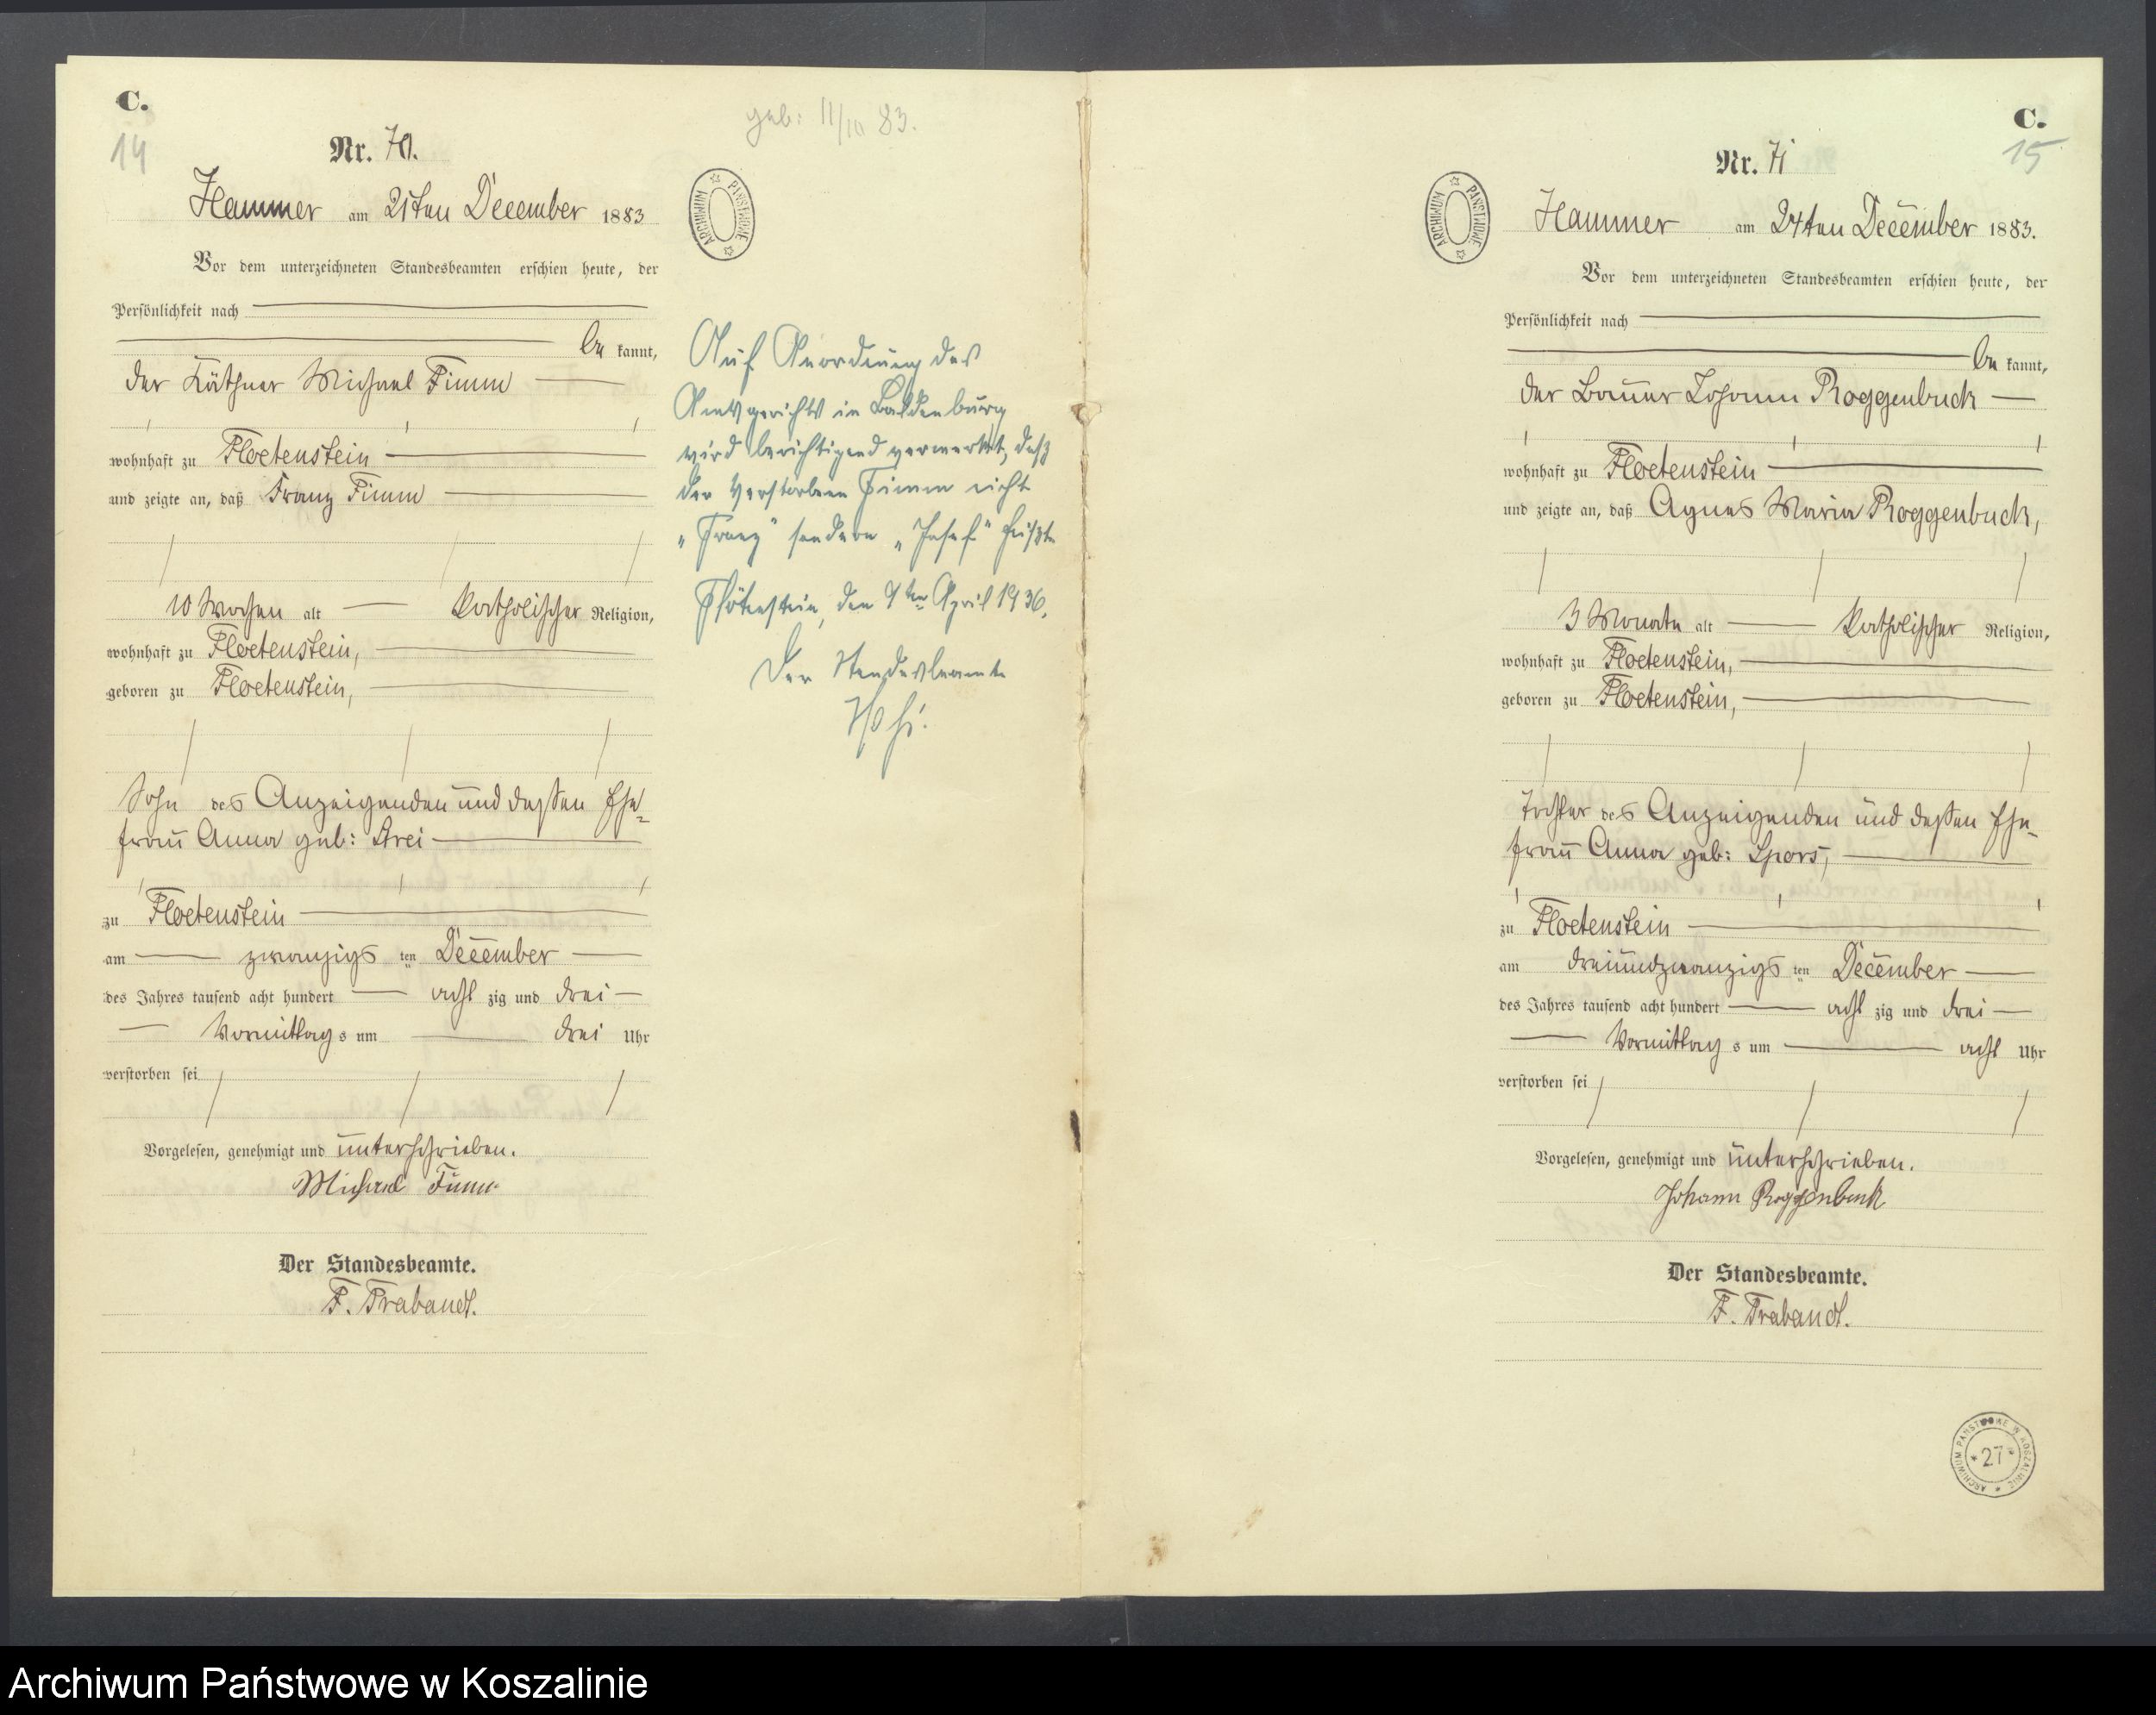 C.
14
Nr. 70.
Hammer am 21ten December 1883
Vor dem unterzeichneten Standesbeamten erschien heute, der
Persönlichkeit nach
be kannt,
der Käthner Michael Fimm
wohnhaft zu Floetenstein
und zeigte an, daß Franz Fimm
10 Wochen alt katholischer Religion,
wohnhaft zu Floetenstein,
geboren zu Floetenstein,
Sohn des Anzeigenden und dessen Ehe-
frau Anna geb: Strei
zu Floetenstein
am zwanzigs ten December
des Jahres tausend acht hundert acht zig und drei
Vormittag s um drei Uhr
verstorben sei
Vorgelesen, genehmigt und unterschrieben.
Michael Fimm
Der Standesbeamte.
F. Trabandt.
geb: 11/10 83.
ARCHIWUM PAŃSTWOWE
Auf Anordnung des
Amtsgerichts in Baldenburg
wird berichtigend vermerkt, daß
der Verstorbene Fimm nicht
„Franz“ sondern „Josef“ heißt.
Flötenstein, den 9ten April 1936.
Der Standesbeamte
C.
15
Nr. 71
ARCHIWUM PAŃSTWOWE
Hammer am 24ten December 1883.
Vor dem unterzeichneten Standesbeamten erschien heute, der
Persönlichkeit nach
be kannt,
der Bauer Johann Roggenbuck
wohnhaft zu Floetenstein
und zeigte an, daß Agnes Maria Roggenbuck,
3 Monate alt katholischer Religion,
wohnhaft zu Floetenstein,
geboren zu Floetenstein,
Tochter des Anzeigenden und dessen Ehe-
frau Anna geb: Spors,
zu Floetenstein
am dreiundzwanzigs ten December
des Jahres tausend acht hundert acht zig und drei
Vormittag s um acht Uhr
verstorben sei
Vorgelesen, genehmigt und unterschrieben.
Johann Roggenbuck
Der Standesbeamte.
F. Trabandt.
ARCHIWUM PAŃSTWOWE W KOSZALINIE
27
Archiwum Państwowe w Koszalinie